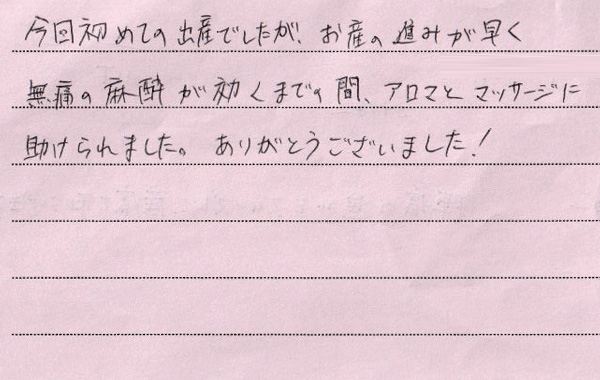 今回初めての出産でしたが、お産の進みが早く
無痛の麻酔が効くまでの間、アロマとマッサージに
助けられました。ありがとうございました！